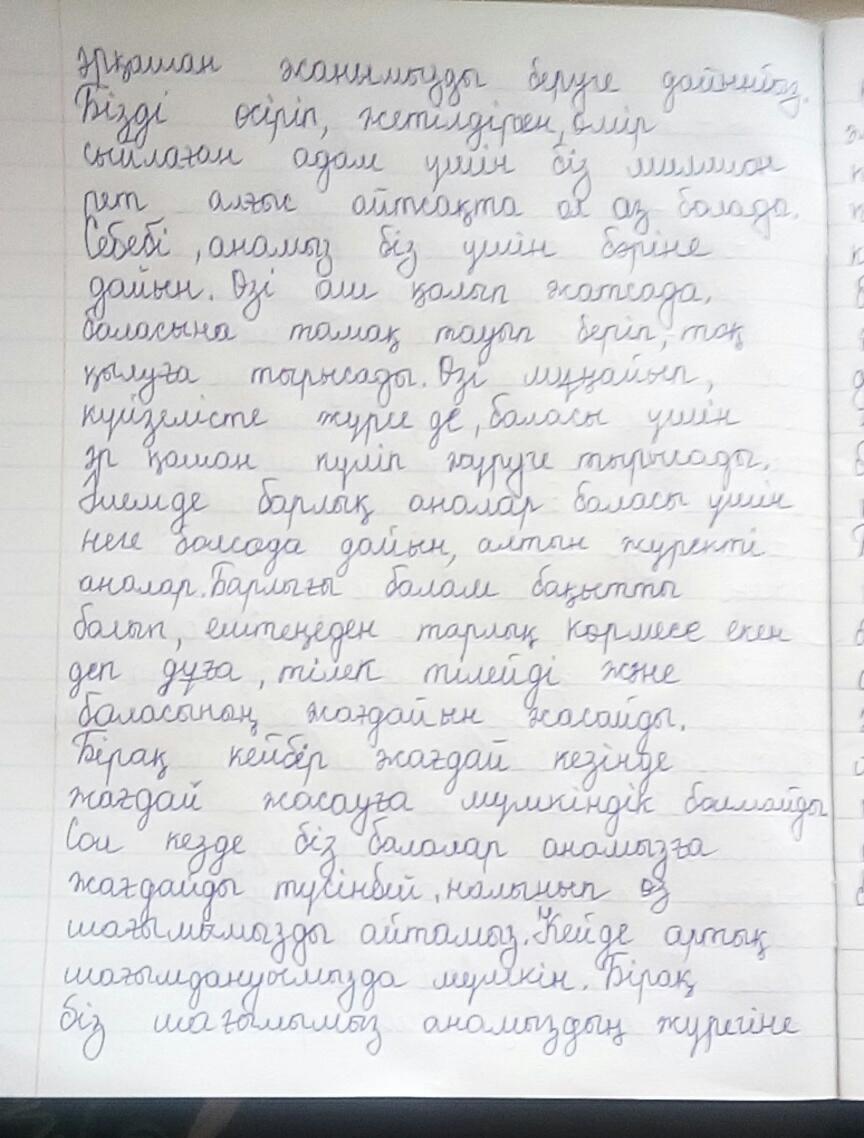 әрқашан жанымызды беруге дайынбыз.
Бізді өсіріп, жетілдірген, өмір
сыйлаған адам үшін біз миллион
рет алғыс айтсақта ол аз болады.
Себебі, анамыз біз үшін бәріне
дайын. Өзі аш қалып жатсада,
баласына тамақ тауып беріп, тоқ
қылуға тырысады. Өзі мұңайып,
күйзелісте жүрсе де, баласы үшін
әр қашан күліп жүруге тырысады.
Әлемде барлық аналар баласы үшін
неге болсада дайын, алтын жүректі
аналар. Барлығы балам бақытты
болып, ештеңеден тарлық көрмесе екен
деп дұға, тілек тілейді және
баласының жағдайын жасайды.
Бірақ кейбір жағдай кезінде
жағдай жасауға мүмкіндік болмайды
Сол кезде біз балалар анамызға
жағдайды түсінбей, налынып өз
шағымымызды айтамыз. Кейде артық
шағымдануымызда мүмкін. Бірақ
біз шағымымыз анамыздың жүрегіне